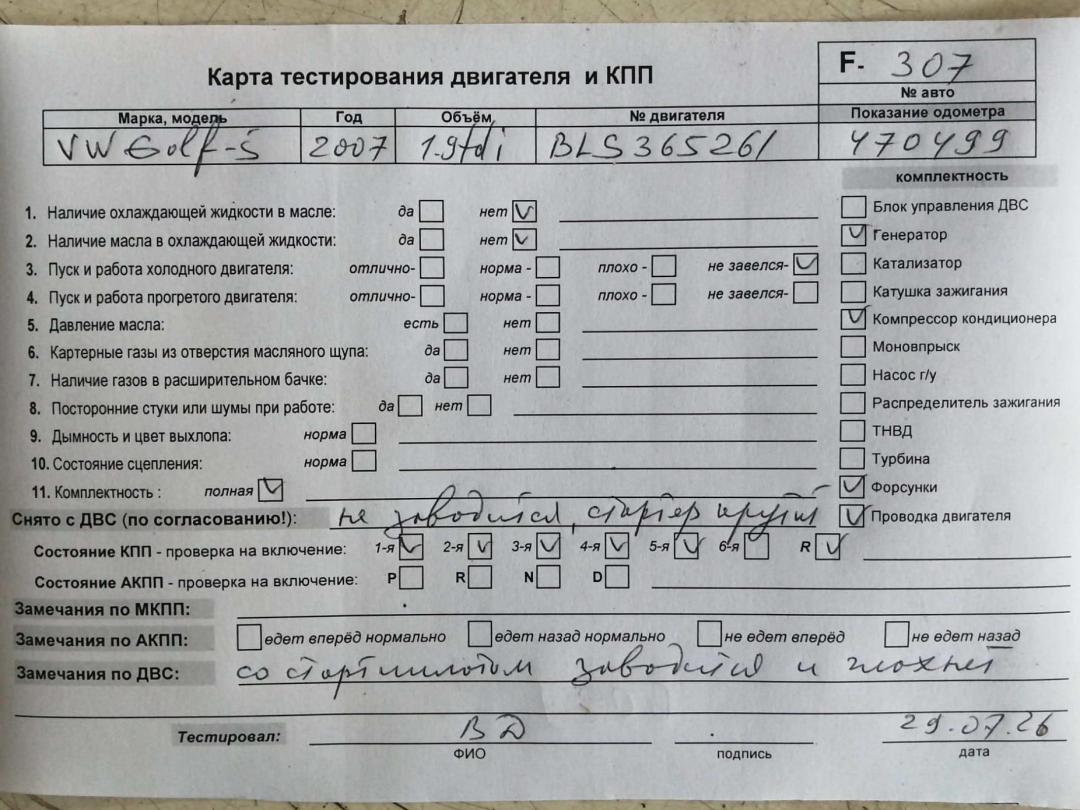 Карта тестирования двигателя и КПП
F- 307
№ авто
Марка, модель Год Объём № двигателя Показание одометра
VW Golf-5 2007 1.9tdi BLS365261 470499
комплектность
1. Наличие охлаждающей жидкости в масле: да нет Блок управления ДВС
2. Наличие масла в охлаждающей жидкости: да нет Генератор
3. Пуск и работа холодного двигателя: отлично- норма - плохо - не завелся- Катализатор
4. Пуск и работа прогретого двигателя: отлично- норма - плохо - не завелся- Катушка зажигания
5. Давление масла: есть нет Компрессор кондиционера
6. Картерные газы из отверстия масляного щупа: да нет Моновпрыск
7. Наличие газов в расширительном бачке: да нет Насос г/у
8. Посторонние стуки или шумы при работе: да нет Распределитель зажигания
9. Дымность и цвет выхлопа: норма ТНВД
10. Состояние сцепления: норма Турбина
11. Комплектность : полная Форсунки
Снято с ДВС (по согласованию!): не заводится, стартер крутит Проводка двигателя
Состояние КПП - проверка на включение: 1-я 2-я 3-я 4-я 5-я 6-я R
Состояние АКПП - проверка на включение: P R N D
Замечания по МКПП:
Замечания по АКПП: едет вперёд нормально едет назад нормально не едет вперёд не едет назад
Замечания по ДВС: со стартпилотом заводится и глохнет
Тестировал: ВД 29.07.26
ФИО подпись дата